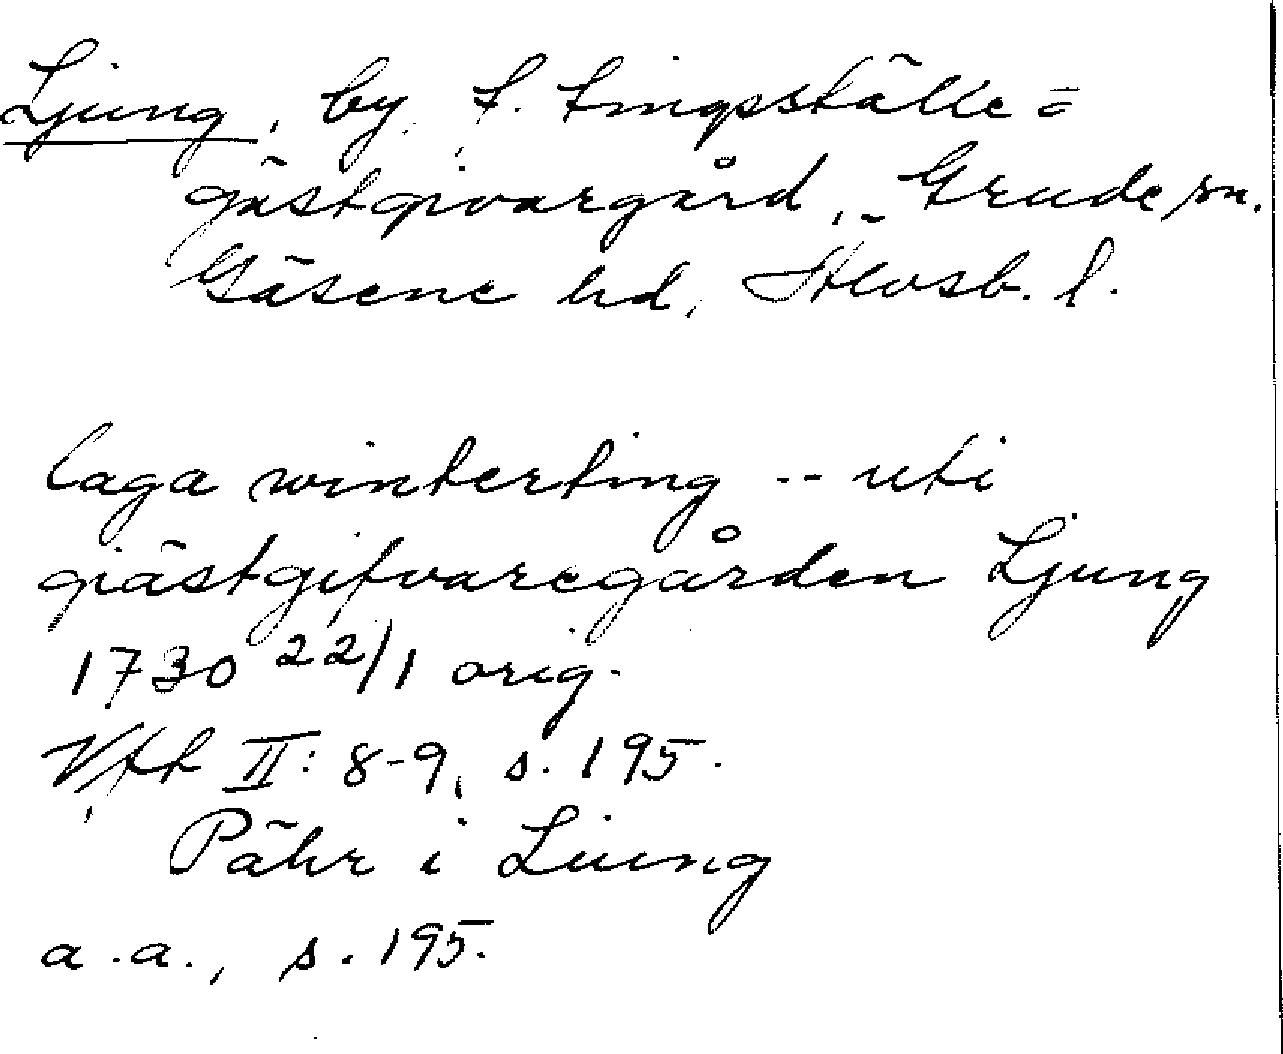 Ljung, by, f. tingsställe =
gästgivargård, Grude sn.
Gäsene hd, Älvsb. l.
laga winterting -- uti
giästgifvaregården Ljung
1730 22/1 orig.
Vff II: 8-9, s. 195.
Pähr i Liung
a.a., s. 195.